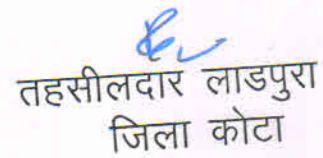 तहसीलदार लाडपुरा
जिला कोटा